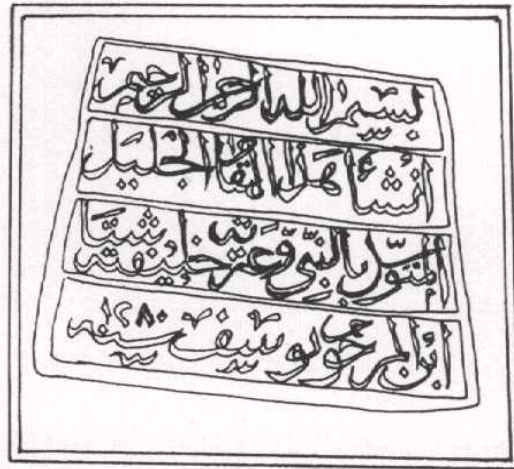 بسم الله الرحمن الرحيم
أنشأ هذا المقام الجليل
المتوسل بالنبي وعترته خليفة
ابن المرحوم يوسف سنة ١٢٨٠